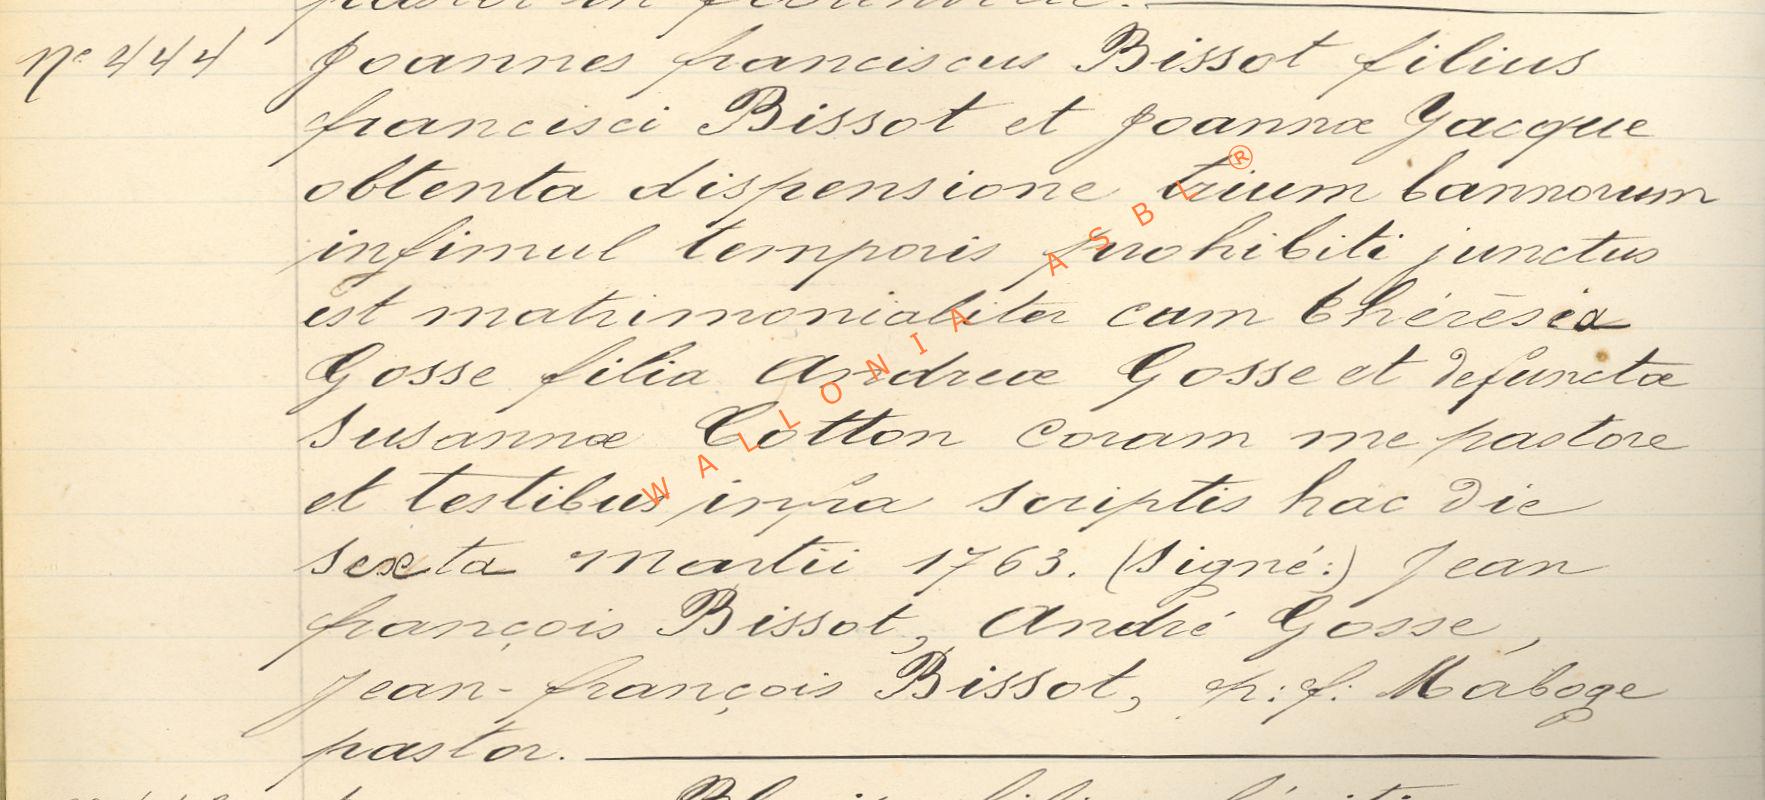 Nº 444 Joannes franciscus Bissot filius
francisci Bissot et Joannæ Yacque
obtenta dispensione trium bannorum
infimul temporis prohibiti junctus
est matrimonialiter cum thérèsia
Gosse filia Andreæ Gosse et defunctæ
Susannæ Cotton coram me pastore
et testibus infra scriptis hac die
sexta martii 1763. (Signé:) Jean
françois Bissot, André Gosse,
Jean-françois Bissot, p: f: Maboge
pastor.
WALLONIA ASBL ®